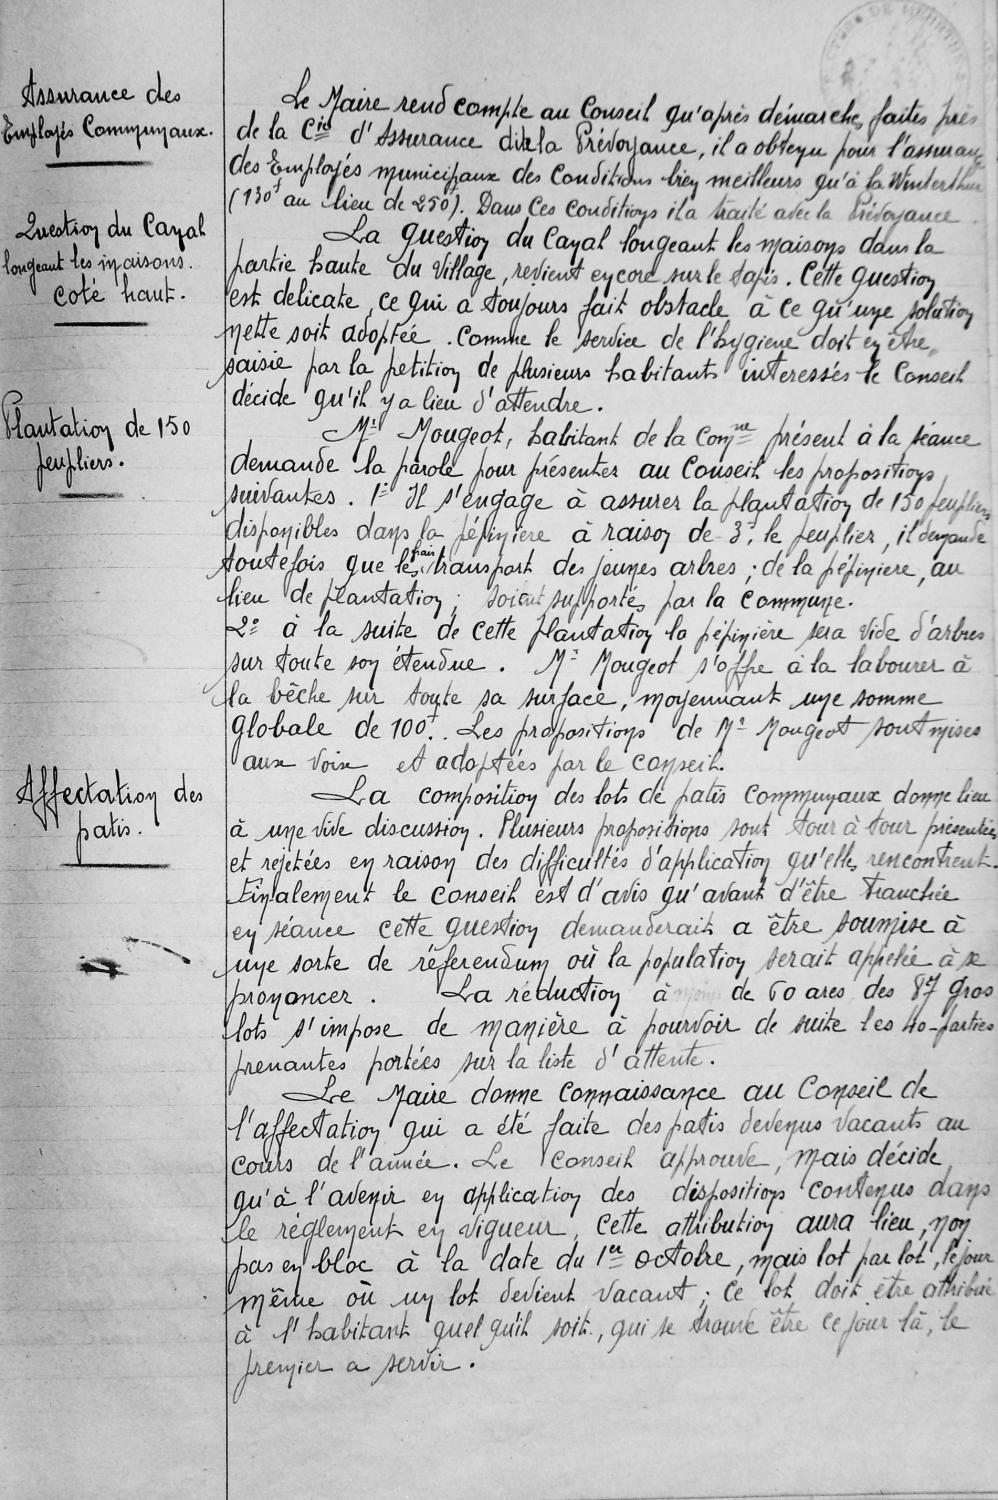 Assurance des
Employés Communaux.
Le Maire rend compte au Conseil qu'après démarches faites près
de la Cie d'Assurance dite la Prévoyance, il a obtenu pour l'assurance
des Employés municipaux des Conditions bien meilleurs qu'à la Winterthur
(130f au lieu de 250f). Dans Ces conditions il a traité avec la Prévoyance.
Question du Canal
longeant les maisons.
coté haut.
La Question du Canal longeant les maisons dans la
partie haute du Village, revient encore sur le tapis. Cette question
est delicate, ce qui a toujours fait obstacle à ce qu'une solution
nette soit adoptée. Comme le service de l'hygiene doit en être
saisie par la petition de plusieurs habitants interessés le Conseil
décide qu'il y a lieu d'attendre.
Plantation de 150
peupliers.
Mr Mougeot, habitant de la Comne présent à la séance
demande la parole pour présenter au Conseil les propositions
suivantes. 1° Il s'engage à assurer la plantation de 150 peupliers
disponibles dans la pépinière à raison de 3f le peuplier, il demande
toutefois que les frais transport des jeunes arbres; de la pépiniere, au
lieu de plantation; soient supportés par la commune.
2° à la suite de cette plantation la pépinière sera vide d'arbres
sur toute son étendue. Mr Mougeot s'offre à la labourer à
la bêche sur toute sa surface, moyennant une somme
globale de 100f. Les propositions de Mr Mougeot sont mises
aux voix et adoptées par le conseil.
Affectation des
patis.
La composition des lots de patis Communaux donne lieu
à une vive discussion. Plusieurs propositions sont tour à tour présentées
et rejetées en raison des difficultés d'application qu'elles rencontrent.
Finalement le conseil est d'avis qu'avant d'être tranchée
en séance cette question demanderait a être soumise à
une sorte de réferendum où la population serait appelée à se
prononcer. La réduction à moins de 60 ares des 87 gros
lots s'impose de manière à pourvoir de suite les 40 parties
prenantes portées sur la liste d'attente.
Le Maire donne connaissance au Conseil de
l'affectation qui a été faite des patis devenus vacants au
cours de l'année. Le Conseil approuve, mais décide
qu'à l'avenir en application des dispositions contenus dans
le réglement en vigueur, cette attribution aura lieu, non
pas en bloc à la date du 1er octobre, mais lot par lot, le jour
même où un lot devient vacant; ce lot doit etre attribué
à l'habitant quel qu'il soit, qui se trouve être ce jour là, le
premier a servir.